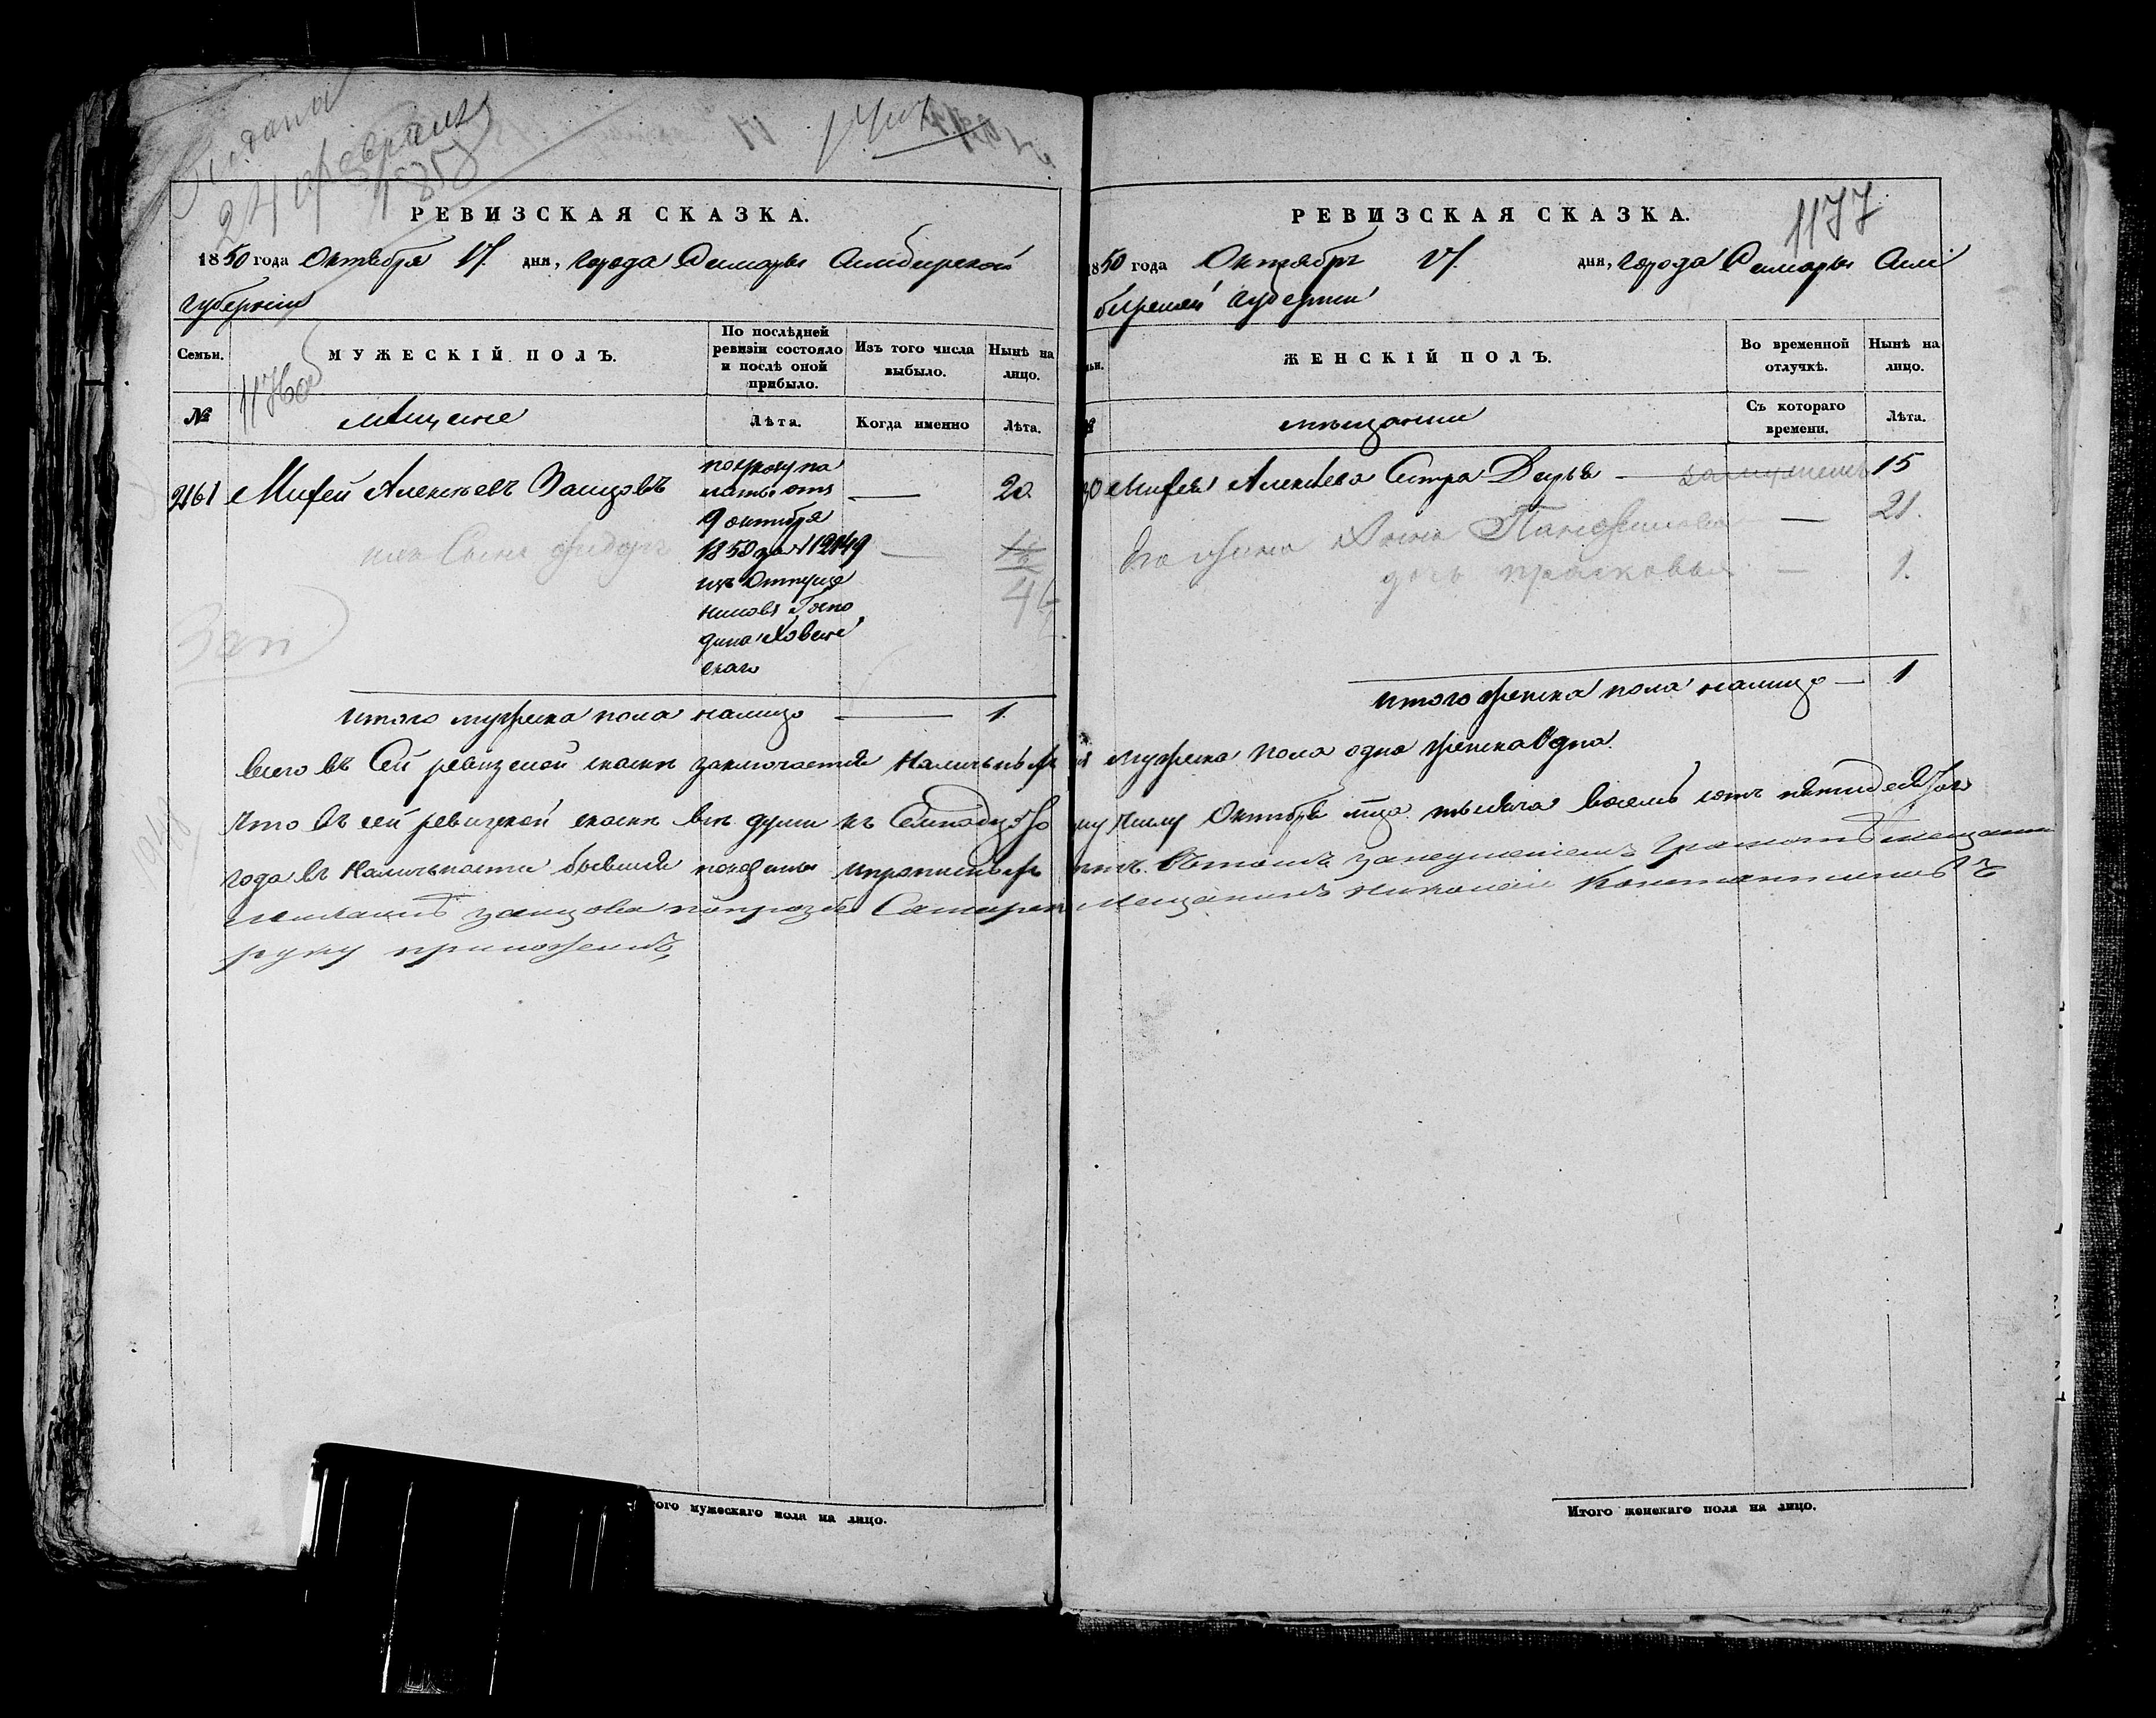 24 февраля
1858
РЕВИЗСКАЯ СКАЗКА.
1850 года Октября 17. дня, города Самары Симбирской
губернии
Семьи.
МУЖЕСКІЙ ПОЛЪ.
По послѣдней
ревизіи состояло
и послѣ оной
прибыло.
Изъ того числа
выбыло.
Нынѣ на
лицо.
№
мещане
Лѣта.
Когда именно
Лѣта.
2161 Михей Алексѣевъ Заицовъ
20.
по указу па
латы отъ
9 октября
1850 за № 12149
изъ Отпуще
никовъ Госпо
дина Ховен
скаго
Сынъ Фидоръ
Зап
итого мужеска пола налицо 1.
1177
РЕВИЗСКАЯ СКАЗКА.
1850 года Октября 17. дня, города Самары Сим
бирской губернии
ЖЕНСКІЙ ПОЛЪ.
Во временной
отлучкѣ.
Нынѣ на
лицо.
мѣщанки
Съ котораго
времени.
Лѣта.
Михея Алексѣева Сестра Дарья замужемъ 15
его жена Анна Панфилова 21.
дочь прасковья 1.
итого женска пола налицо 1
всего въ Сей ревизской сказкѣ заключается Наличныхъ мужеска пола одна женска одна.
что въ сей ревизской сказкѣ всѣ души къ Семнадцатому числу Октября мца тысяча восемь сотъ пятидесятого
года въ Наличности бывшия показаны и прописныхъ нѣтъ. въ томъ за неумениемъ грамоте мещанина
заицова по прозбе Самарской мещанинъ николай Константиновъ
руку приложилъ
Итого мужескаго пола на лицо.
Итого женскаго пола на лицо.